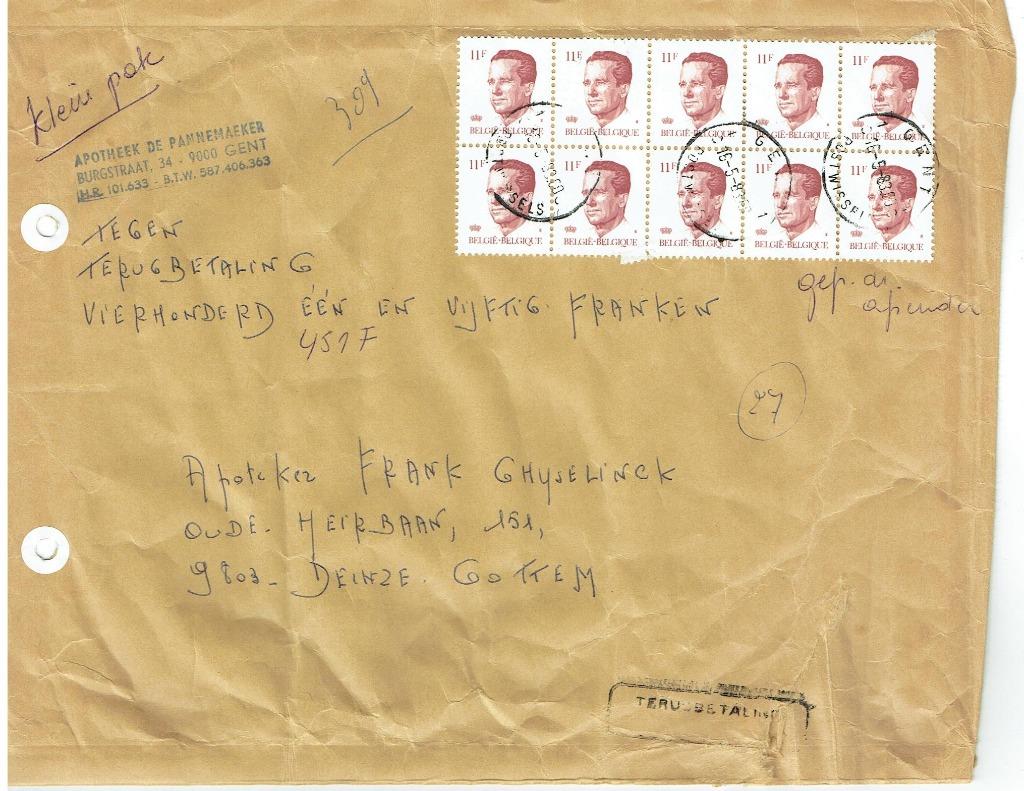 klein pak
309
APOTHEEK DE PANNEMAEKER
BURGSTRAAT, 34 - 9000 GENT
H.R. 101.633 - B.T.W. 587.406.363
11F 11F 11F 11F 11F
BELGIË-BELGIQUE BELGIË-BELGIQUE BELGIË-BELGIQUE BELGIË-BELGIQUE BELGIË-BELGIQUE
11F 11F 11F 11F 11F
BELGIË-BELGIQUE BELGIË-BELGIQUE BELGIË-BELGIQUE BELGIË-BELGIQUE BELGIË-BELGIQUE
GENT
POSTWISSELS
TEGEN
TERUGBETALING
VIERHONDERD ÉÉN EN VIJFTIG FRANKEN
451 F
27
Apoteker FRANK GHYSELINCK
OUDE. HEIRBAAN, 151,
9803- DEINZE. GOTTEM
TERUGBETALING